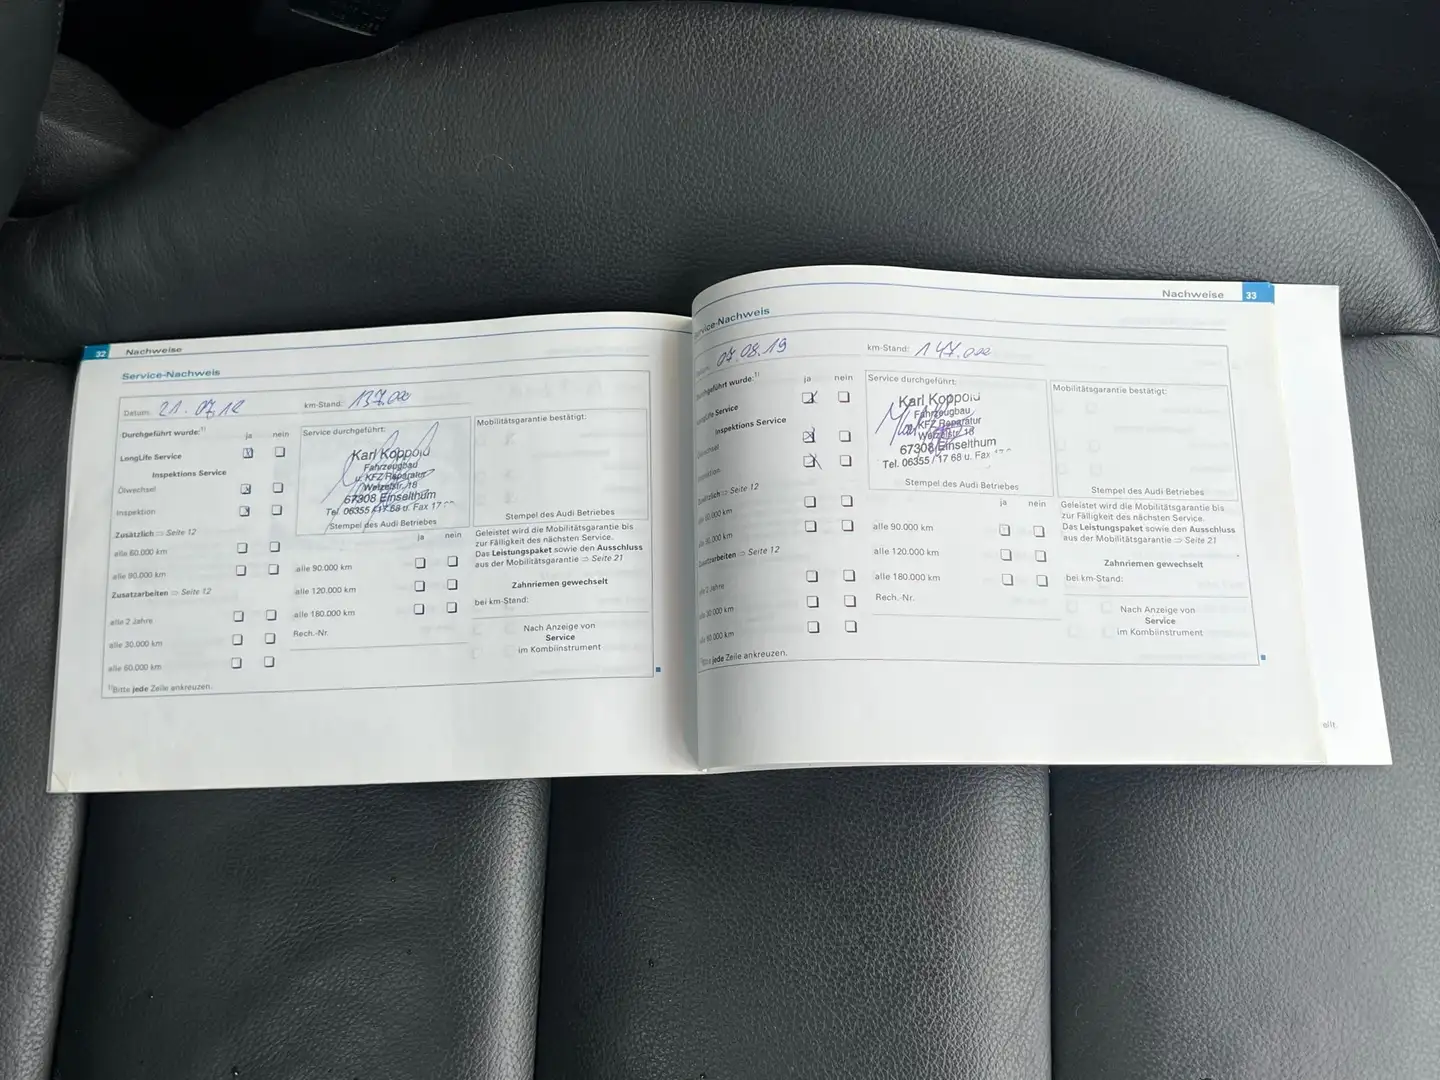 32 Nachweise
Service-Nachweis
Datum: 21.07.18 km-Stand: 137.000
Durchgeführt wurde:¹⁾ ja nein
LongLife Service
Inspektions Service
Ölwechsel
Inspektion
Zusätzlich ⇒ Seite 12
alle 60.000 km
alle 90.000 km
Zusatzarbeiten ⇒ Seite 12
alle 2 Jahre
alle 30.000 km
alle 60.000 km
¹⁾Bitte jede Zeile ankreuzen.
Service durchgeführt:
Karl Koppold
Fahrzeugbau
u. KFZ Reparatur
Welzelstr. 18
67308 Einselthum
Tel. 06355 / 17 68 u. Fax 17
Stempel des Audi Betriebes
ja nein
alle 90.000 km
alle 120.000 km
alle 180.000 km
Rech.-Nr.
Mobilitätsgarantie bestätigt:
Stempel des Audi Betriebes
Geleistet wird die Mobilitätsgarantie bis
zur Fälligkeit des nächsten Service.
Das Leistungspaket sowie den Ausschluss
aus der Mobilitätsgarantie ⇒ Seite 21
Zahnriemen gewechselt
bei km-Stand:
Nach Anzeige von
Service
im Kombiinstrument
Nachweise 33
Service-Nachweis
Datum: 07.08.19 km-Stand: 147.000
Durchgeführt wurde:¹⁾ ja nein
LongLife Service
Inspektions Service
Ölwechsel
Inspektion
Zusätzlich ⇒ Seite 12
alle 60.000 km
alle 90.000 km
Zusatzarbeiten ⇒ Seite 12
alle 2 Jahre
alle 30.000 km
alle 60.000 km
¹⁾Bitte jede Zeile ankreuzen.
Service durchgeführt:
Karl Koppold
Fahrzeugbau
u. KFZ Reparatur
Welzelstr. 18
67308 Einselthum
Tel. 06355 / 17 68 u. Fax
Stempel des Audi Betriebes
ja nein
alle 90.000 km
alle 120.000 km
alle 180.000 km
Rech.-Nr.
Mobilitätsgarantie bestätigt:
Stempel des Audi Betriebes
Geleistet wird die Mobilitätsgarantie bis
zur Fälligkeit des nächsten Service.
Das Leistungspaket sowie den Ausschluss
aus der Mobilitätsgarantie ⇒ Seite 21
Zahnriemen gewechselt
bei km-Stand:
Nach Anzeige von
Service
im Kombiinstrument
ellt.